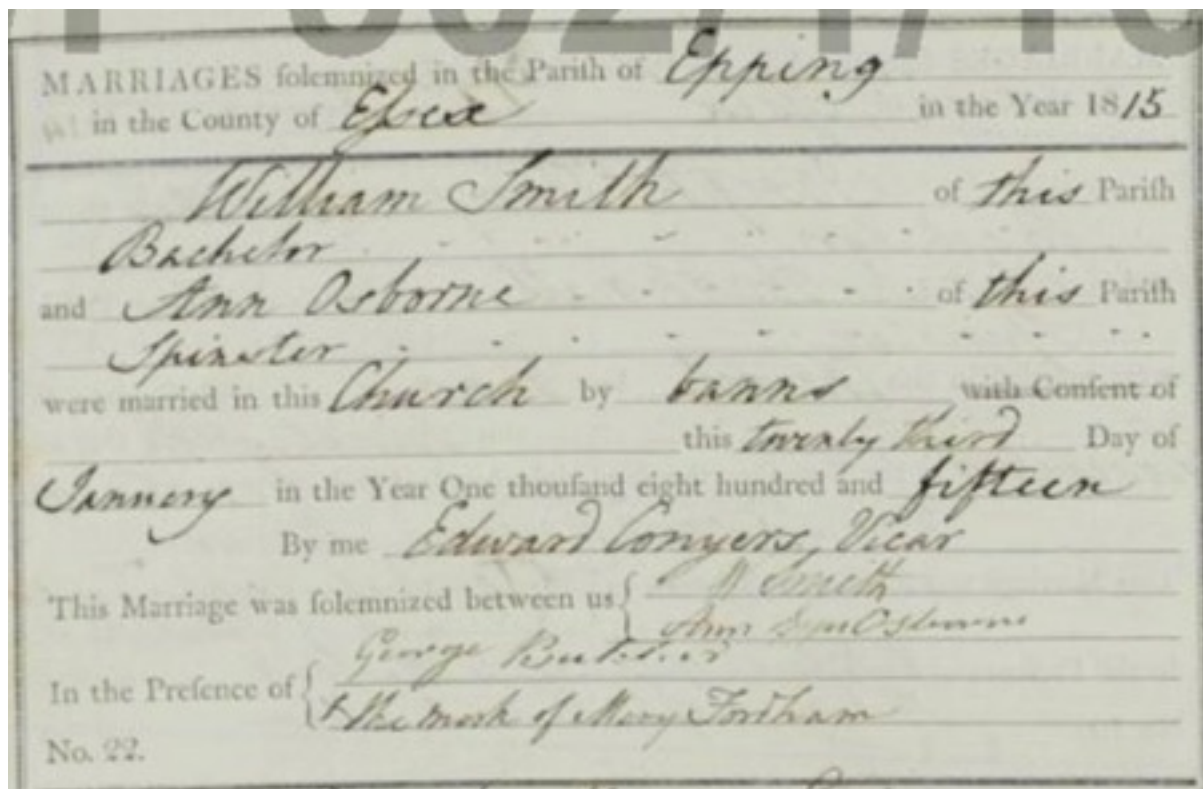 MARRIAGES solemnized in the Parish of Epping
in the County of Essex in the Year 1815
William Smith of this Parish
Bachelor
and Ann Osborne of this Parish
Spinster
were married in this Church by banns with Consent of
this twenty third Day of
January in the Year One thousand eight hundred and fifteen
By me Edward Conyers, Vicar
This Marriage was solemnized between us { W Smith
Ann Osborne
George
In the Presence of { X The mark of Mary Fordham
No. 22.